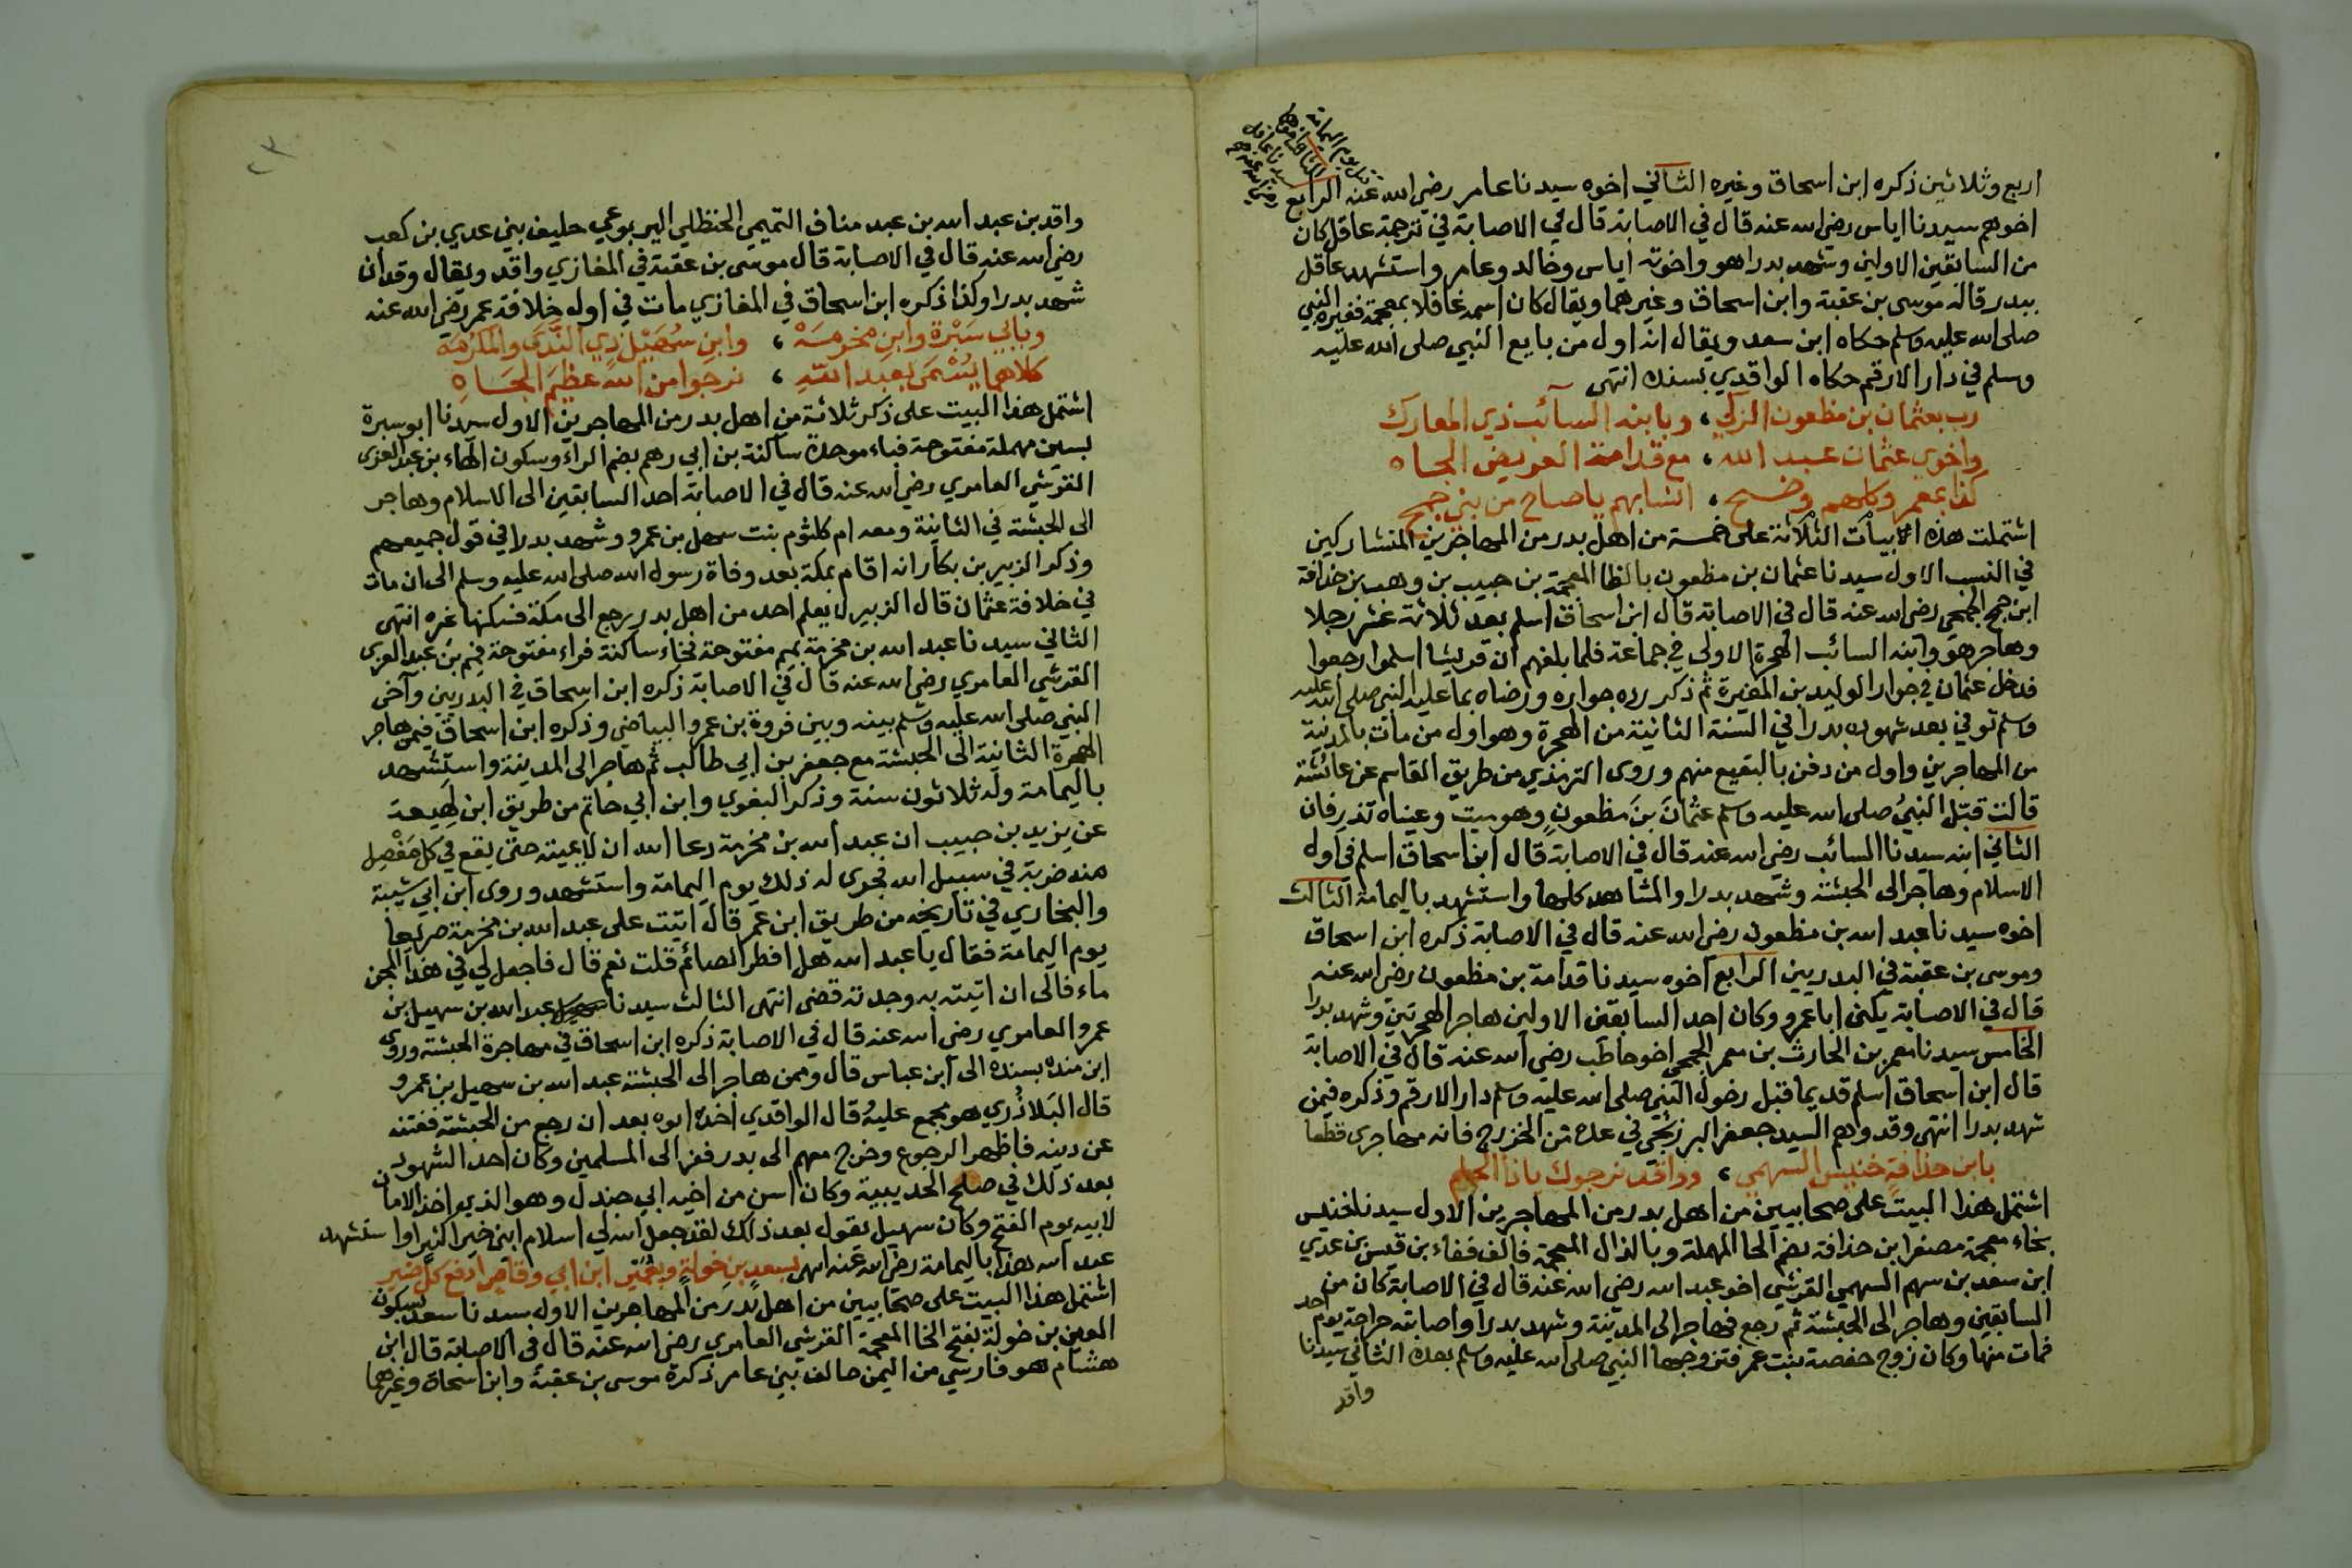 اربع وثلاثين ذكره ابن اسحاق وغيره الثاني اخوه سيدنا عامر رضي الله عنه الرابع
اخوهم سيدنا اياس رضي الله عنه قال في الاصابة قال في الاصابة في ترجمة عاقل كان
من السابقين الاولين وشهد بدرا هو واخوته اياس وخالد وعامر واستشهد عاقل
ببدر قاله موسى بن عقبة وابن اسحاق وغيرهما ويقال كان اسمه غافلا بمعجمة فغيره النبي
صلى الله عليه وسلم حكاه ابن سعد ويقال انه اول من بايع النبي صلى الله عليه
وسلم في دار الارقم حكاه الواقدي بسنده انتهى
رب بعثمان بن مظعون الزكي ، وبابنه السائب ذي المعارك
واخوي عثمان عبد الله ، مع قدامة العريض الجاه
كذا بمعمر وكلهم وضح ، انسابهم يا صاح من بني جمح
اشتملت هذه الابيات الثلاثة على خمسة من اهل بدر من المهاجرين المتشاركين
في النسب الاول سيدنا عثمان بن مظعون بالظا المعجمة بن حبيب بن وهب بن حذافة
ابن جمح الجمحي رضي الله عنه قال في الاصابة قال ابن اسحاق اسلم بعد ثلاثة عشر رجلا
وهاجر هو وابنه السائب الهجرة الاولى في جماعة فلما بلغهم ان قريشا اسلموا رجعوا
فدخل عثمان في جوار الوليد بن المغيرة ثم ذكر رده جواره ورضاه بما عليه النبي صلى الله عليه
وسلم توفي بعد شهوده بدرا في السنة الثانية من الهجرة وهو اول من مات بالمدينة
من المهاجرين واول من دفن بالبقيع منهم وروى الترمذي من طريق القاسم عن عائشة
قالت قبّل النبيُ صلى الله عليه وسلم عثمانَ بنَ مظعونٍ وهو ميت وعيناه تذرفان
الثاني ابنه سيدنا السائب رضي الله عنه قال في الاصابة قال ابن اسحاق اسلم في اول
الاسلام وهاجر الى الحبشة وشهد بدرا والمشاهد كلها واستشهد باليمامة الثالث
اخوه سيدنا عبد الله بن مظعون رضي الله عنه قال في الاصابة ذكره ابن اسحاق
وموسى بن عقبة في البدريين الرابع اخوه سيدنا قدامة بن مظعون رضي الله عنه
قال في الاصابة يكنى ابا عمرو وكان احد السابقين الاولين هاجر الهجرتين وشهد بدرا
الخامس سيدنا معمر بن الحارث بن معمر الجمحي اخو حاطب رضي الله عنه قال في الاصابة
قال ابن اسحاق اسلم قديما قبل دخول النبي صلى الله عليه وسلم دار الارقم وذكره فيمن
شهد بدرا انتهى وقد وهم السيد جعفر البرزنجي في عده من الخزرج فانه مهاجري قطعا
بابن حذافة خنيس السهمي ، وواقد نرجوك ياذا الحلم
اشتمل هذا البيت على صحابيين من اهل بدر من المهاجرين الاول سيدنا خنيس
بخاء معجمة مصغرا بن حذافة بضم الحا المهملة وبالذال المعجمة فالف ففاء بن قيس بن عدي
ابن سعد بن سهم السهمي القرشي اخو عبد الله رضي الله عنه قال في الاصابة كان من
السابقين وهاجر الى الحبشة ثم رجع فهاجر الى المدينة وشهد بدرا واصابته جراحة يوم احد
فمات منها وكان زوج حفصة بنت عمر فتزوجها النبي صلى الله عليه وسلم بعده الثاني سيدنا
واقد
واقد بن عبد الله بن عبد مناف التميمي الحنظلي اليربوعي حليف بني عدي بن كعب
رضي الله عنه قال في الاصابة قال موسى بن عقبة في المغازي واقد ويقال وقدان
شهد بدرا وكذا ذكره ابن اسحاق في المغازي مات في اول خلافة عمر رضي الله عنه
وبابي سَبْرة وابنِ مخرمَهْ ، وابنِ سُهَيْلٍ ذي النَّدَى والمَكْرُمَهْ
كلاهما يُسْمَى بعبد اللهِ ، نرجوا من الله عظيمَ الجَاهِ
اشتمل هذا البيت على ذكر ثلاثة من اهل بدر من المهاجرين الاول سيدنا ابو سبرة
بسين مهملة مفتوحة فباء موحدة ساكنة بن ابي رهم بضم الراء وسكون الهاء بن عبد العزى
القرشي العامري رضي الله عنه قال في الاصابة احد السابقين الى الاسلام وهاجر
الى الحبشة في الثانية ومعه ام كلثوم بنت سهل بن عمرو وشهد بدرا في قول جميعهم
وذكر الزبير بن بكار انه اقام بمكة بعد وفاة رسول الله صلى الله عليه وسلم الى ان مات
في خلافة عثمان قال الزبير لا يعلم احد من اهل بدر رجع الى مكة فسكنها غيره انتهى
الثاني سيدنا عبد الله بن مخرمة بميم مفتوحة فخاء ساكنة فراء مفتوحة فميم بن عبد العزى
القرشي العامري رضي الله عنه قال في الاصابة ذكره ابن اسحاق في البدريين وآخى
النبي صلى الله عليه وسلم بينه وبين فروة بن عمرو البياضي وذكره ابن اسحاق فيمن هاجر
الهجرة الثانية الى الحبشة مع جعفر بن ابي طالب ثم هاجر الى المدينة واستشهد
باليمامة وله ثلاثون سنة وذكر البغوي وابن ابي حاتم من طريق ابن لهيعة
عن يزيد بن حبيب ان عبد الله بن مخرمة دعا الله ان لا يميته حتى يقع في كل مَفْصِل
منه ضربة في سبيل الله فجرى له ذلك يوم اليمامة واستشهد وروى ابن ابي شيبة
والبخاري في تاريخه من طريق ابن عمر قال اتيت على عبد الله بن مخرمة صريعا
يوم اليمامة فقال يا عبد الله هل افطر الصائم قلت نعم قال فاجعل لي في هذا المجن
ماء قال الى ان اتيته به وجدته قضى انتهى الثالث سيدنا عبد الله بن سهيل بن
عمرو العامري رضي الله عنه قال في الاصابة ذكره ابن اسحاق في مهاجرة الحبشة وروى
ابن منده بسنده الى ابن عباس قال وممن هاجر الى الحبشة عبد الله بن سهيل بن عمرو
قال البَلاذُري هو مجمع عليهُ قال الواقدي اخذه ابوه بعد ان رجع من الحبشة ففتنه
عن دينه فاظهر الرجوع وخرج معهم الى بدر ففر الى المسلمين وكان احد الشهود
بعد ذلك في صلح الحديبية وكان اسن من اخيه ابي جندل وهو الذي اخذ الامان
لابيه يوم الفتح وكان سهيل يقول بعد ذلك لقد جعل الله لي اسلام ابني خيرا كثيرا واستشهد
عبد الله هذا باليمامة رضي الله عنه انتهى بسعدٍ بنِ خولةٍ وبعُمَيْر ابن ابي وقاص ادفع كل ضير
اشتمل هذا البيت على صحابيين من اهل بدر من المهاجرين الاول سيدنا سعد بسكون
العين بن خولة بفتح الخا المعجمة القرشي العامري رضي الله عنه قال في الاصابة قال ابن
هشام هو فارسي من اليمن حالف بني عامر ذكره موسى بن عقبة وابن اسحاق وغيرهما